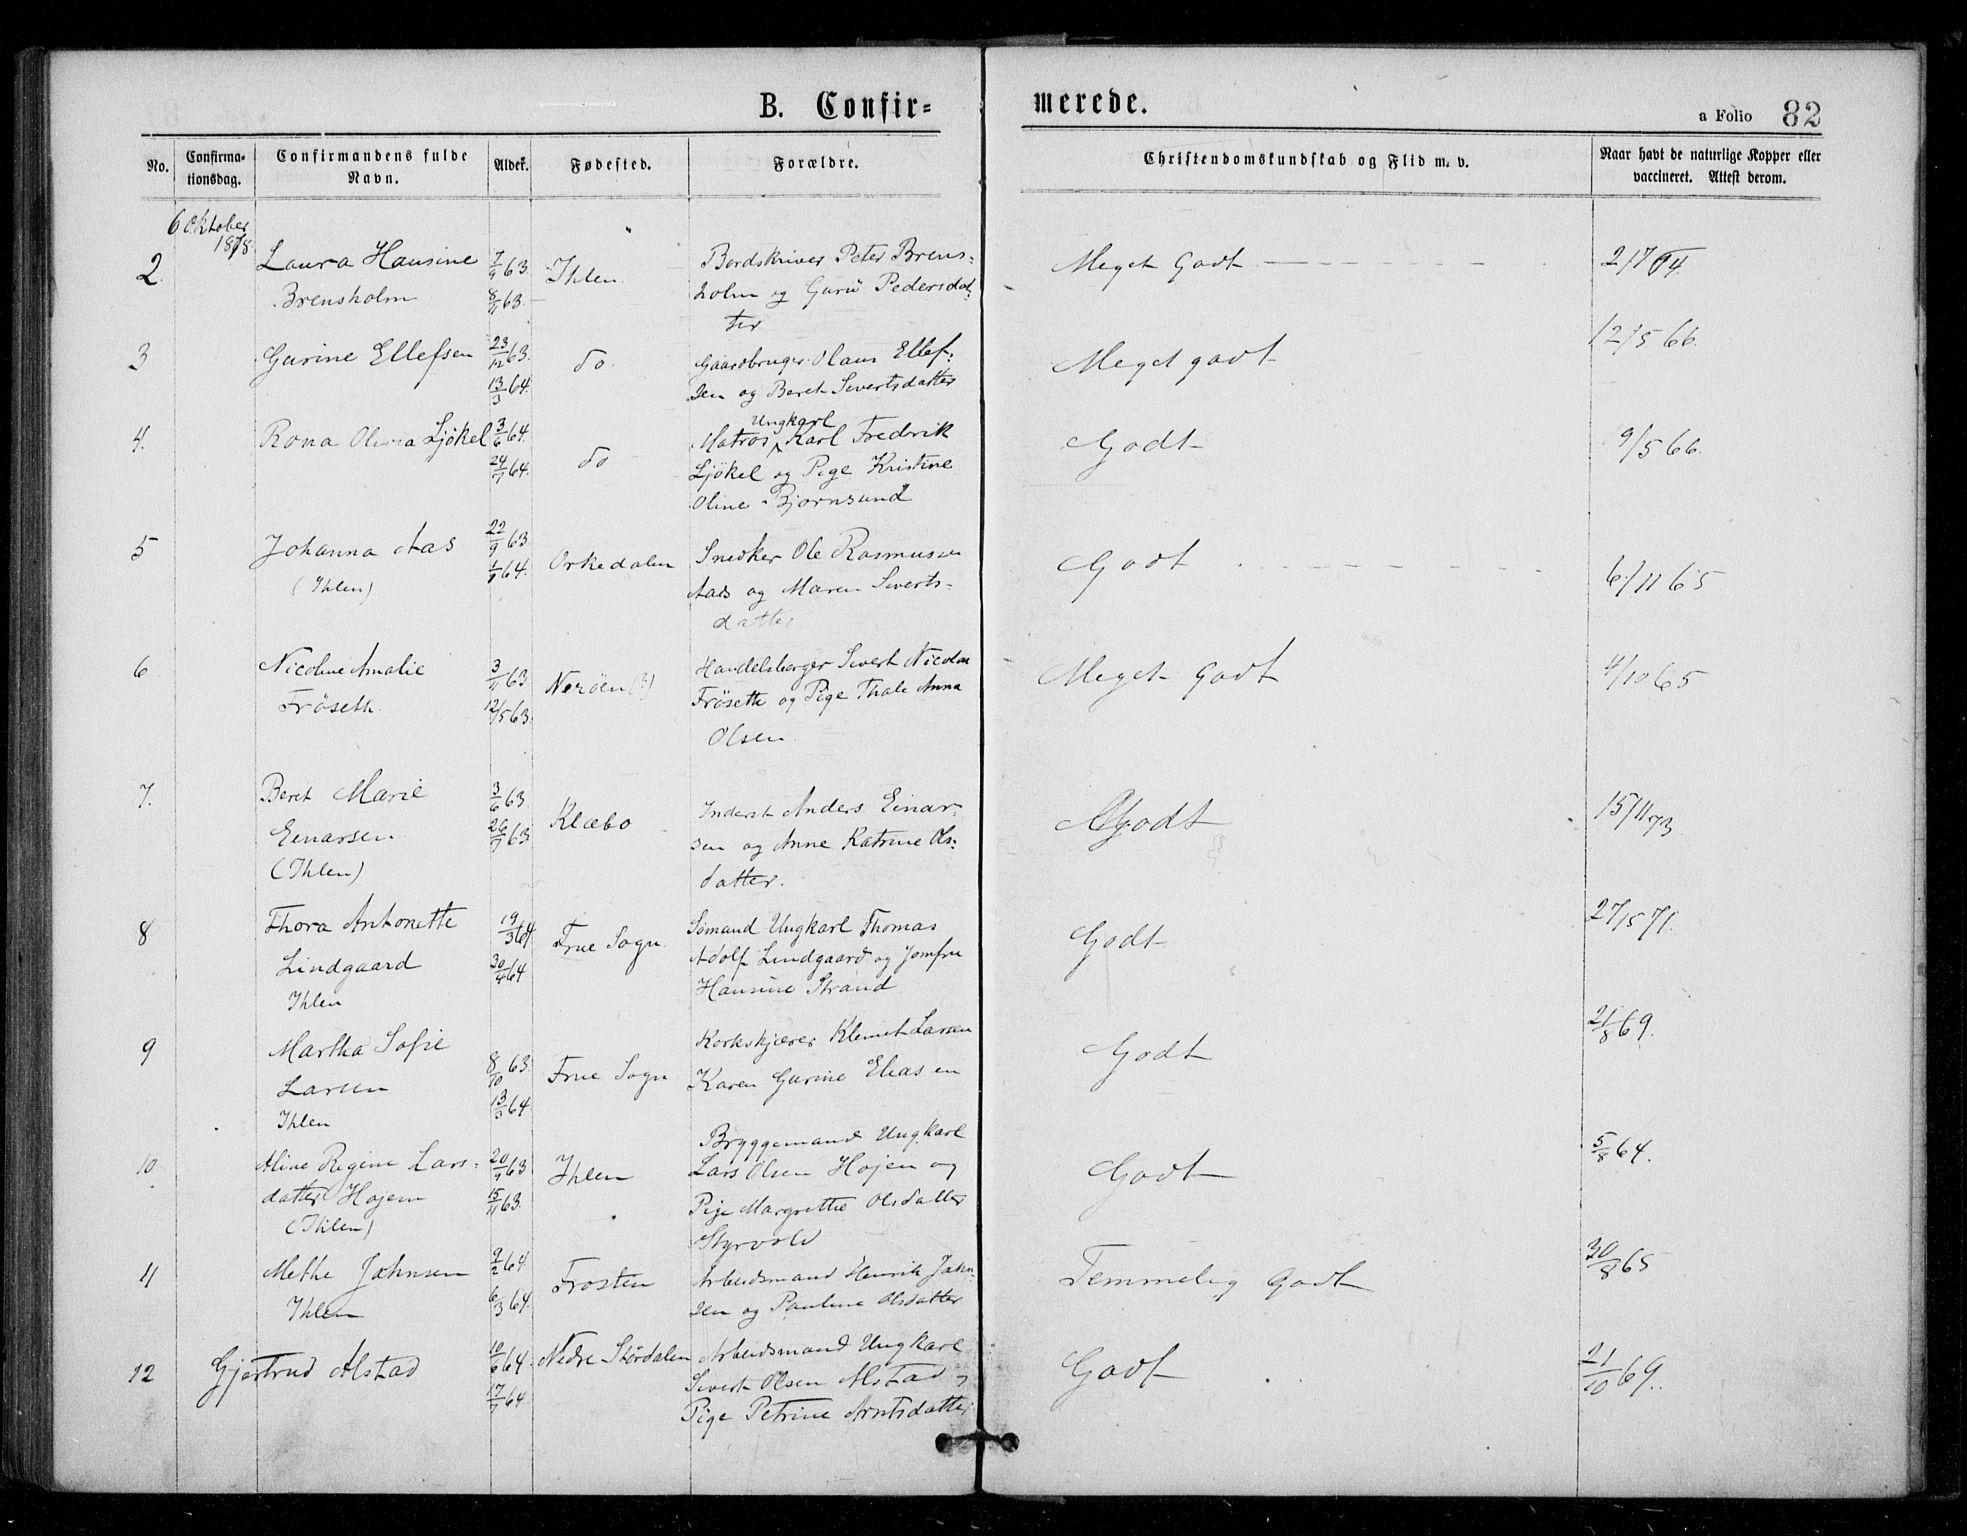 B. Confir=
merede.
a Folio 82
No.
Confirma-
tionsdag.
Confirmandens fulde
Navn.
Alder.
Fødested.
Forældre.
Christendomskundskab og Flid m. v.
Naar havt de naturlige Kopper eller
vaccineret. Attest derom.
6 Oktober
1878
2. Laura Hansine 7/9 63. Ihlen Bordskriver Peter Brens- Meget Godt 2/7 64.
Brensholm 8/11 63. holm og Guru Pedersdat-
ter
3 Gurine Ellefsen 23/12 63. do Gaardbruger Olaus Ellef- Meget godt 12/5 66.
13/3 64. sen og Beret Sivertsdatter
Ungkarl
4. Rona Olivia Sjökel 3/6 64. do Matros Karl Fredrik Godt 9/5 66.
24/7 64. Sjökel og Pige Kristine
Oline Bjornsund
5 Johanna Aas 22/9 63. Orkedalen Snedker Ole Rasmussen Godt 6/11 65
(Ihlen) 1/1 64. Aas og Maren Siverts-
datter
6 Nicoline Amalie 3/4 63 Neröen (?) Handelsborger Sivert Nicolai Meget Godt 4/10 65
Fröseth 12/5 63. Fröseth og Pige Thale Anna
Olsen
7. Beret Marie 3/6 63. Klæbo Inderst Anders Einar- Godt 15/11 73
Einarsen 26/7 63 sen og Anne Katrine Ols-
(Ihlen) datter.
8 Thora Antonette 19/3 64 Frue Sogn Sömand Ungkarl Thomas Godt 27/5 71.
Lindgaard 30/4 64 Adolf Lindgaard og Jomfru
Ihlen Hansine Strand
9 Martha Sofie 8/10 63. Frue Sogn Korkskjærer Klemet Larsen Godt 21/8 69.
Larsen 13/3 64. Karen Gurine Eliasen
Ihlen
Bryggemand Ungkarl
10 Aline Regine Lars- 20/9 63 Ihlen Lars Olsen Hojen og Godt 5/8 64.
datter Hojem 15/11 63. Pige Margrethe Olsdatter
(Ihlen) Styrvold
11 Methe Johnsen 9/2 64. Frosten Arbeidsmand Henrik John- Temmelig Godt 30/8 65
Ihlen 6/3 64. sen og Pauline Olsdatter
12 Gjertrud Alstad 10/6 64. Nedre Stördalen Arbeidsmand Ungkarl Godt 21/10 69.
17/7 64. Sivert Olsen Alstad og
Pige Petrine Arntsdatter